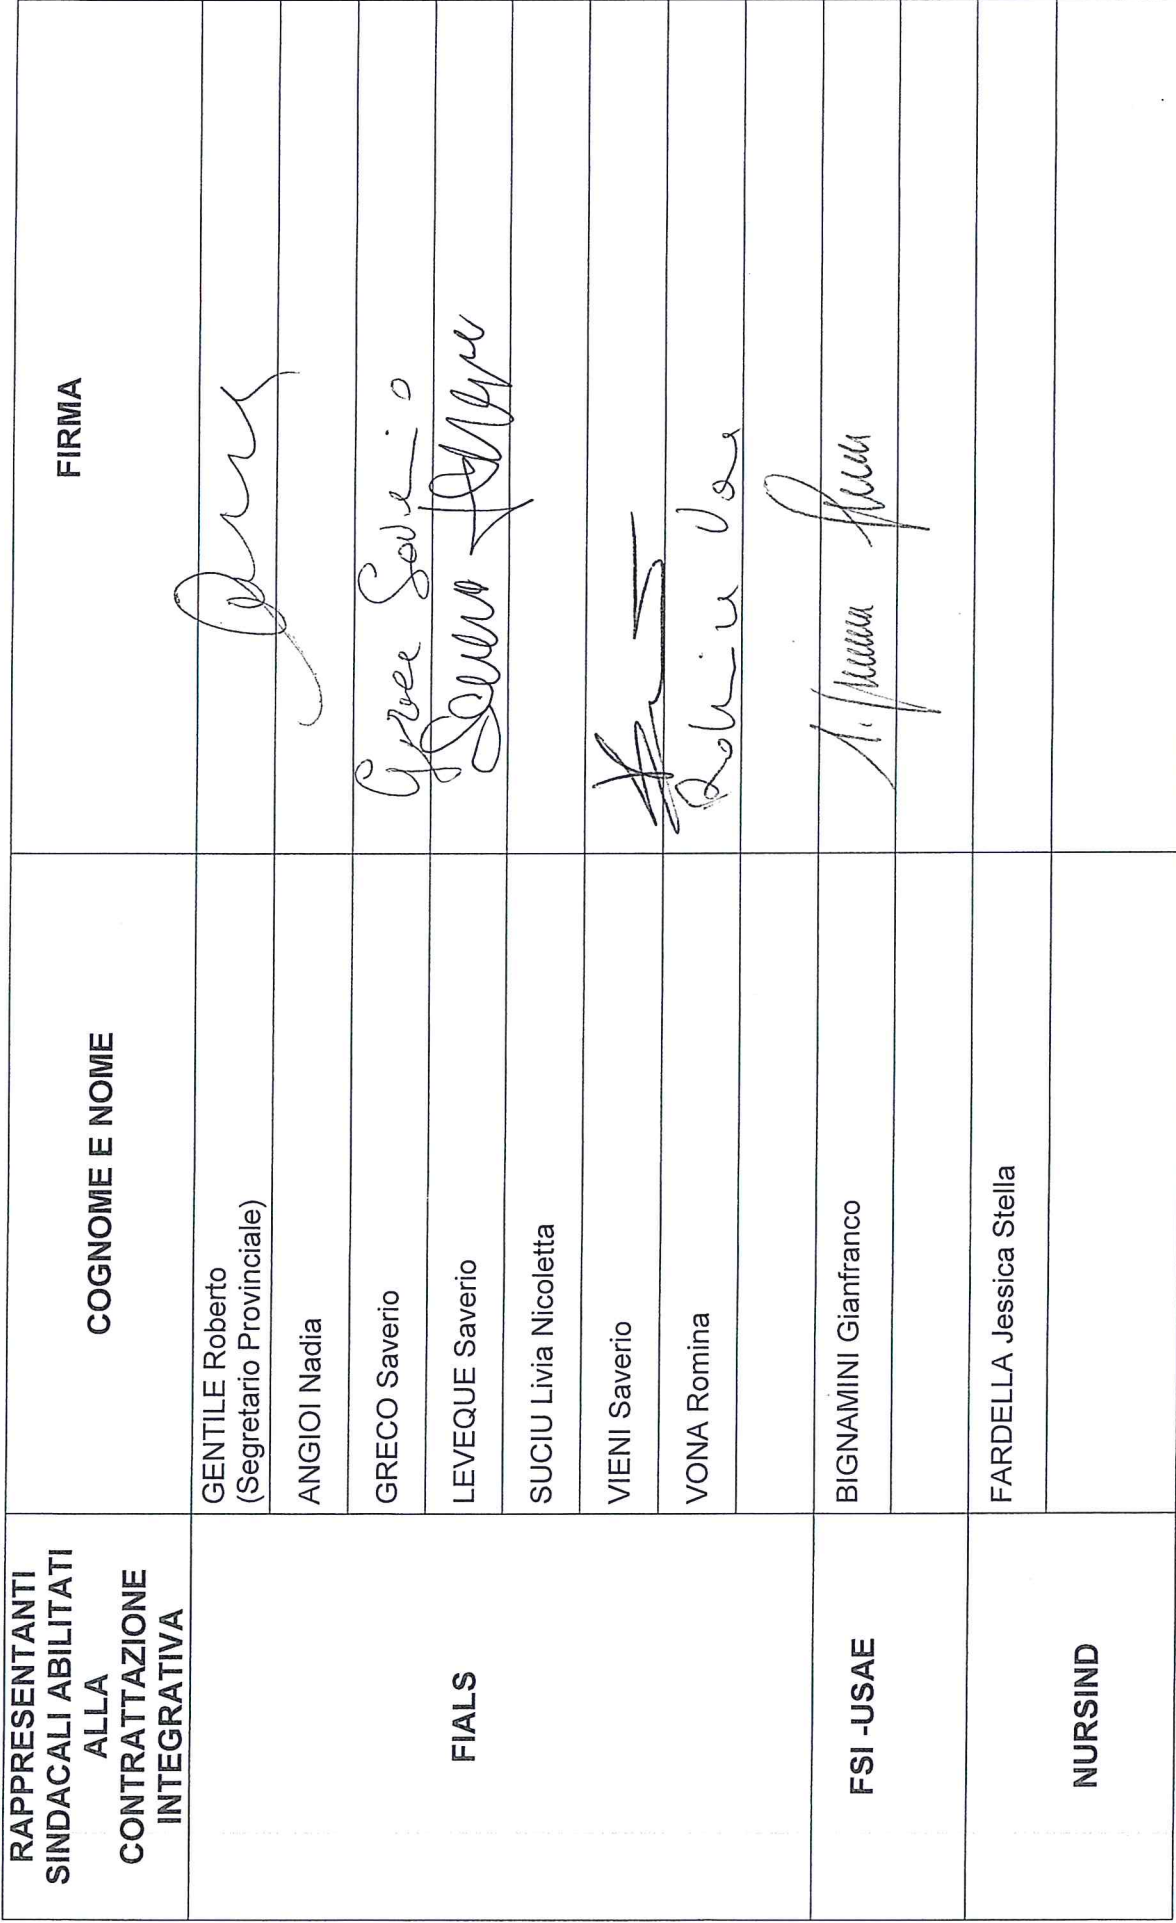 RAPPRESENTANTI
SINDACALI ABILITATI
ALLA
CONTRATTAZIONE
INTEGRATIVA
COGNOME E NOME
FIRMA
FIALS
GENTILE Roberto
(Segretario Provinciale)
ANGIOI Nadia
GRECO Saverio
Greco Saverio
LEVEQUE Saverio
SUCIU Livia Nicoletta
VIENI Saverio
VONA Romina
Romina Vona
FSI -USAE
BIGNAMINI Gianfranco
NURSIND
FARDELLA Jessica Stella